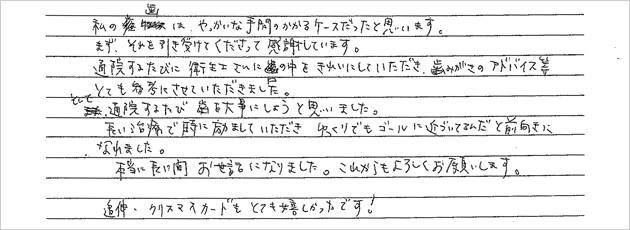 私の歯は、やっかいな手間のかかるケースだったと思います。
まず、それを引き受けてくださって感謝しています。
通院するたびに衛生士さんに歯の中をきれいにしていただき、歯みがきのアドバイス等
とても参考にさせていただきました。
そして、通院するたび歯を大事にしようと思いました。
長い治療で時に励ましていただき ゆっくりでもゴールに近づいてるんだと前向きに
なれました。
本当に長い間 お世話になりました。これからもよろしくお願いします。
追伸・クリスマスカードもとても嬉しかったです!